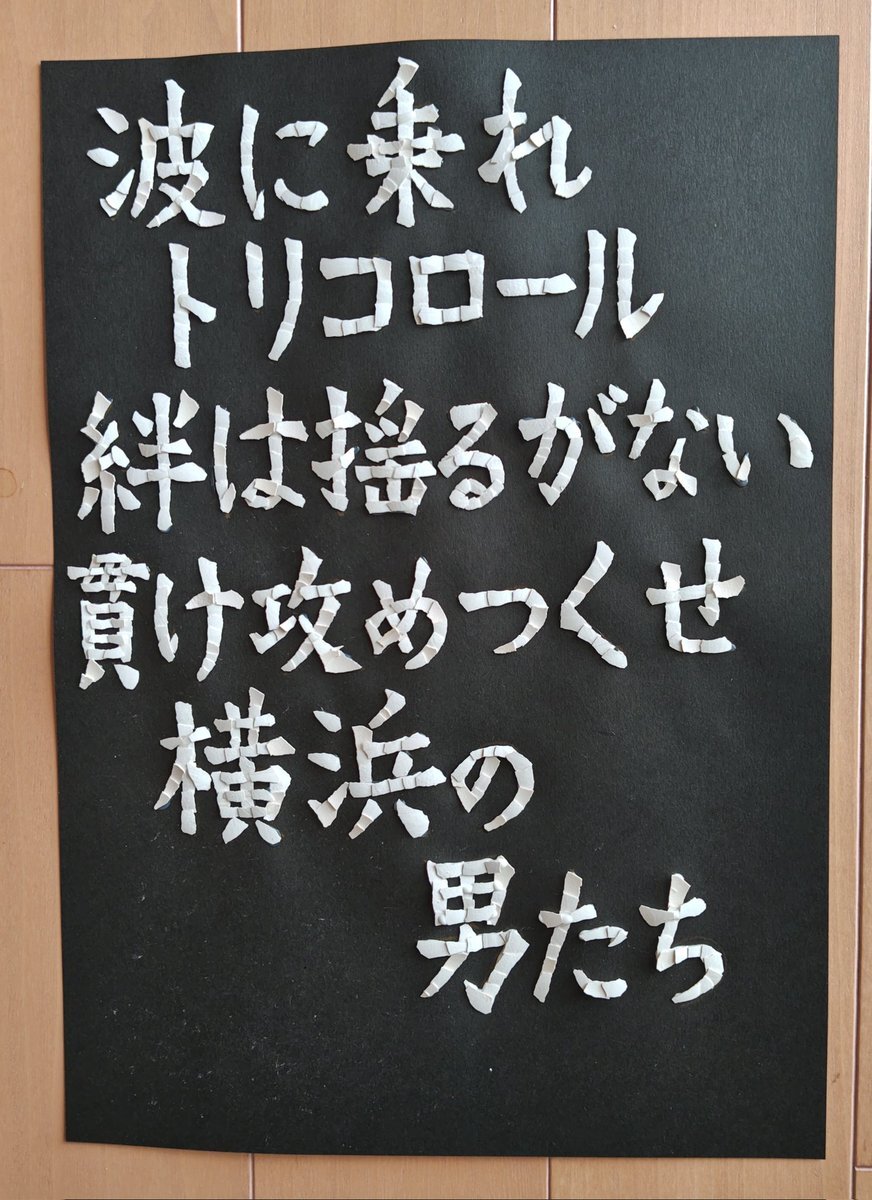 波に乗れ
トリコロール
絆は揺るがない
貫け攻めつくせ
横浜の
男たち